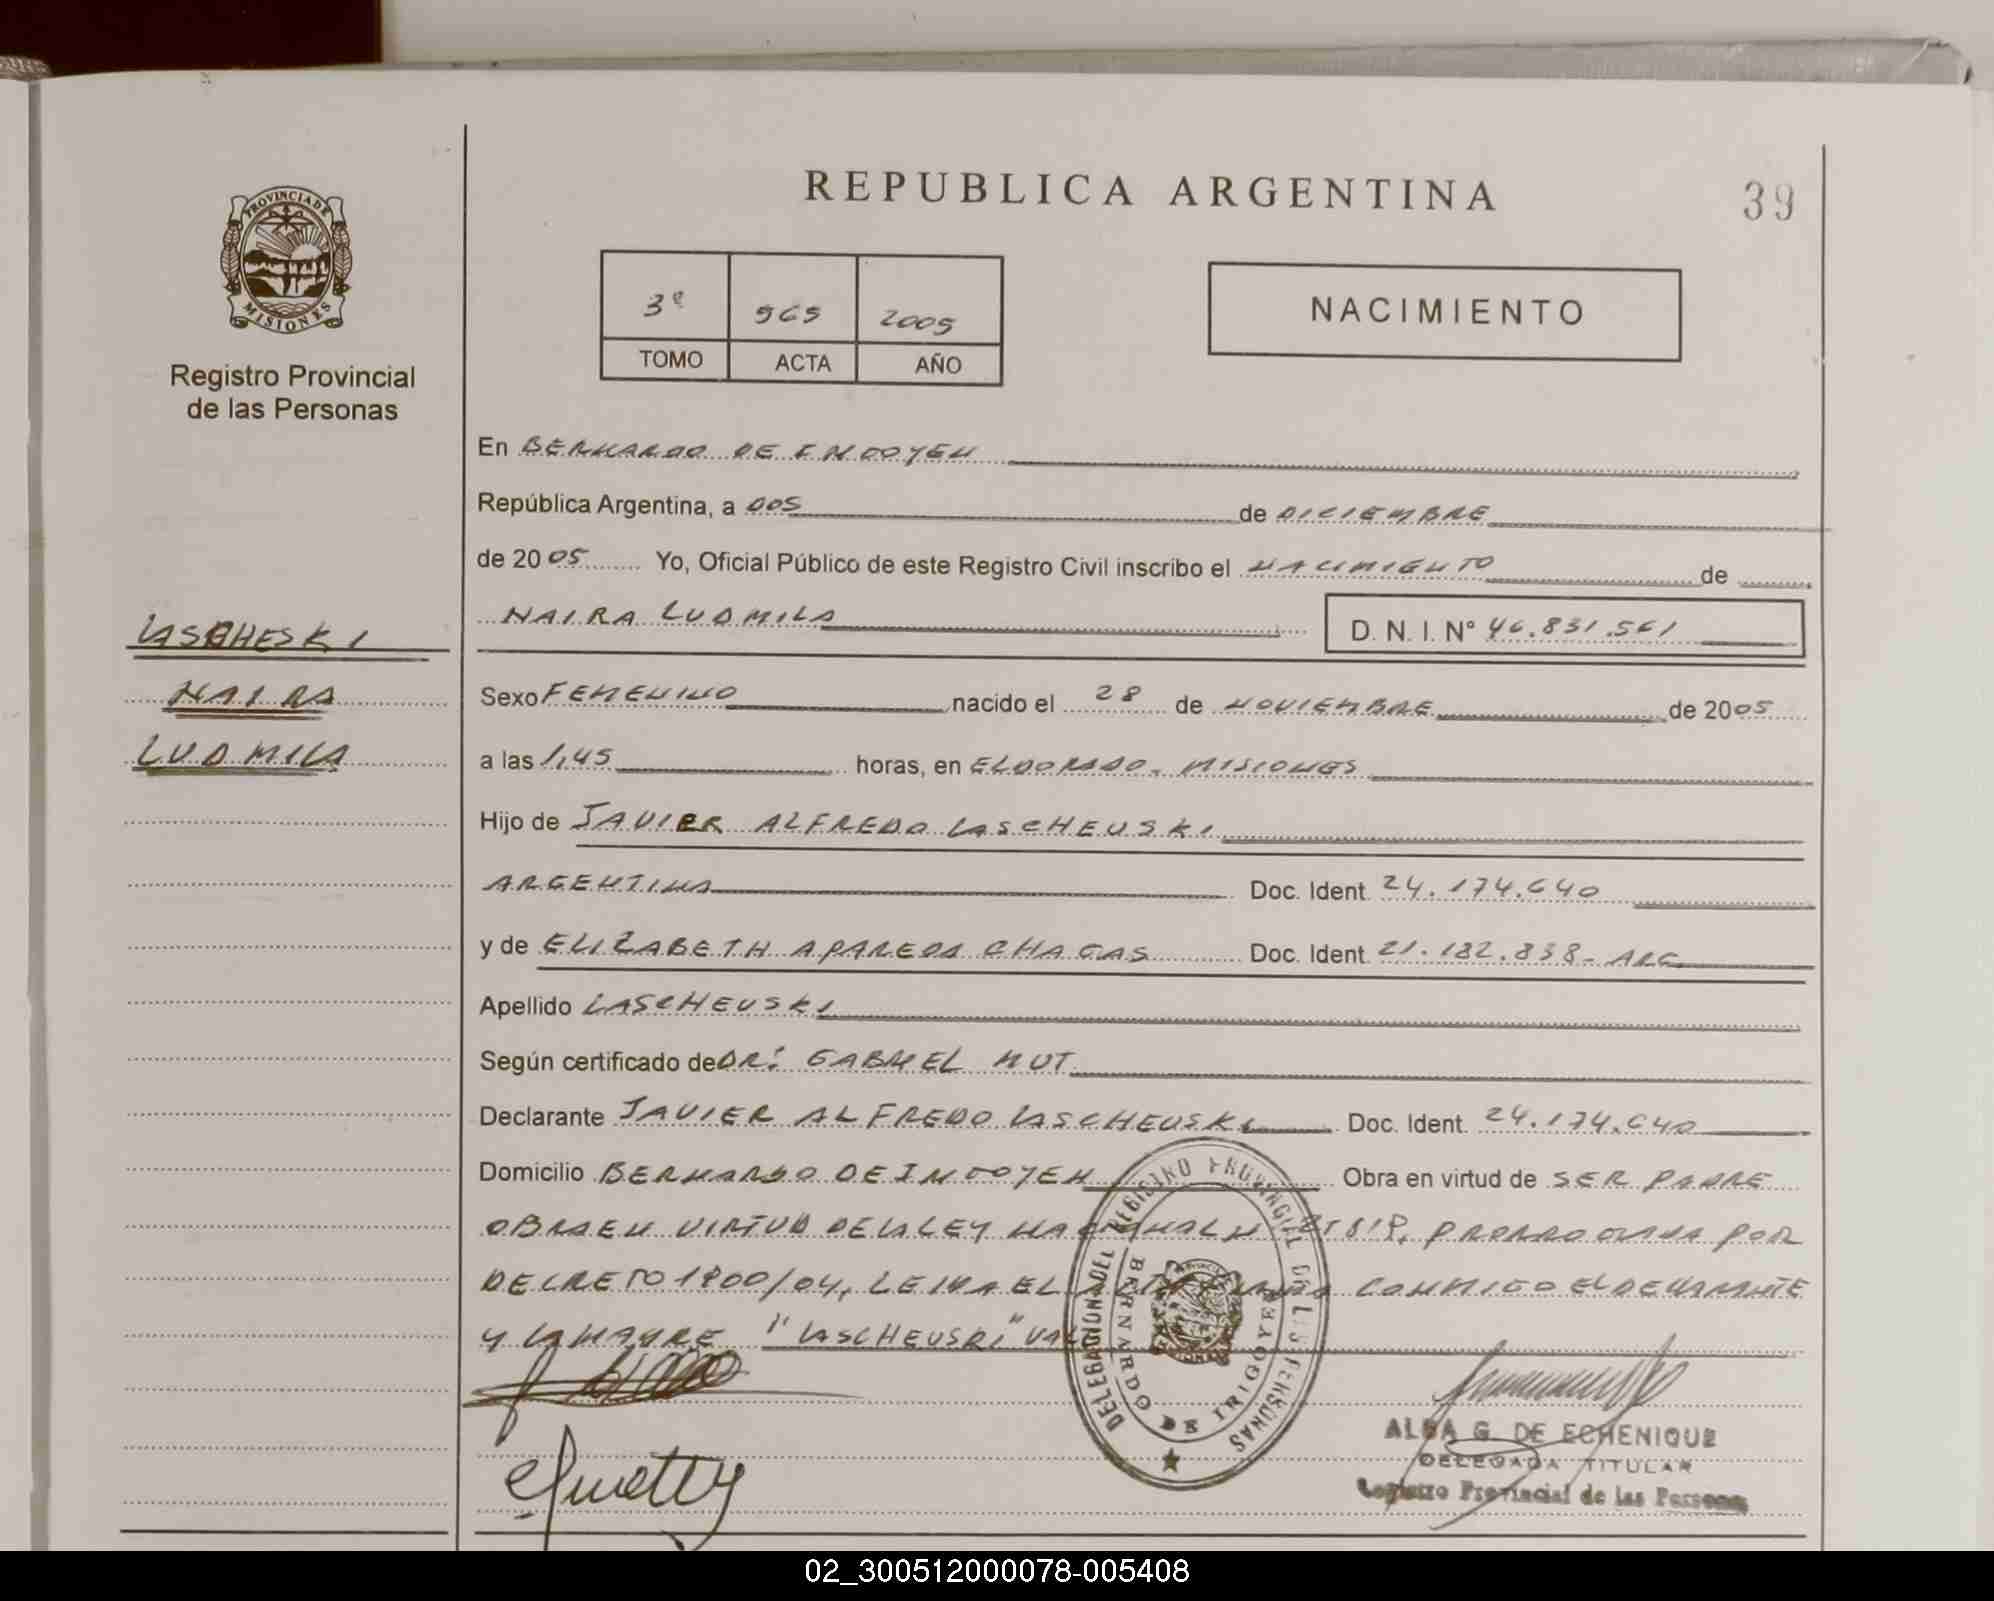 REPUBLICA ARGENTINA
39
PROVINCIA DE
MISIONES
Registro Provincial
de las Personas
3º 565 2005
TOMO ACTA AÑO
NACIMIENTO
En BERNARDO DE IRIGOYEN
República Argentina, a DOS de DICIEMBRE
de 2005 Yo, Oficial Público de este Registro Civil inscribo el NACIMIENTO de
NAIRA LUDMILA D. N. I. Nº 46.831.561
LASCHESKI
NAIRA
LUDMILA
Sexo FEMENINO nacido el 28 de NOVIEMBRE de 2005
a las 1,45 horas, en ELDORADO - MISIONES
Hijo de JAVIER ALFREDO LASCHEUSKI
ARGENTINA Doc. Ident. 24.174.640
y de ELIZABETH APARECIDA CHAGAS Doc. Ident. 21.182.838 - ARG
Apellido LASCHEUSKI
Según certificado de DR: GABRIEL MUT
Declarante JAVIER ALFREDO LASCHEUSKI Doc. Ident. 24.174.640
Domicilio BERNARDO DE IRIGOYEN Obra en virtud de SER PADRE
OBRA EN VIRTUD DE LA LEY NACIONAL N PRORROGADA POR
DECRETO 1900/04, LEIDA EL ACTA FIRMA CONMIGO EL DECLARANTE
Y LA MADRE "LASCHEUSKI" VALE
DELEGACION DEL REGISTRO PROVINCIAL DE LAS PERSONAS
BERNARDO DE IRIGOYEN
ALBA G. DE ECHENIQUE
DELEGADA TITULAR
Registro Provincial de las Personas
02_300512000078-005408